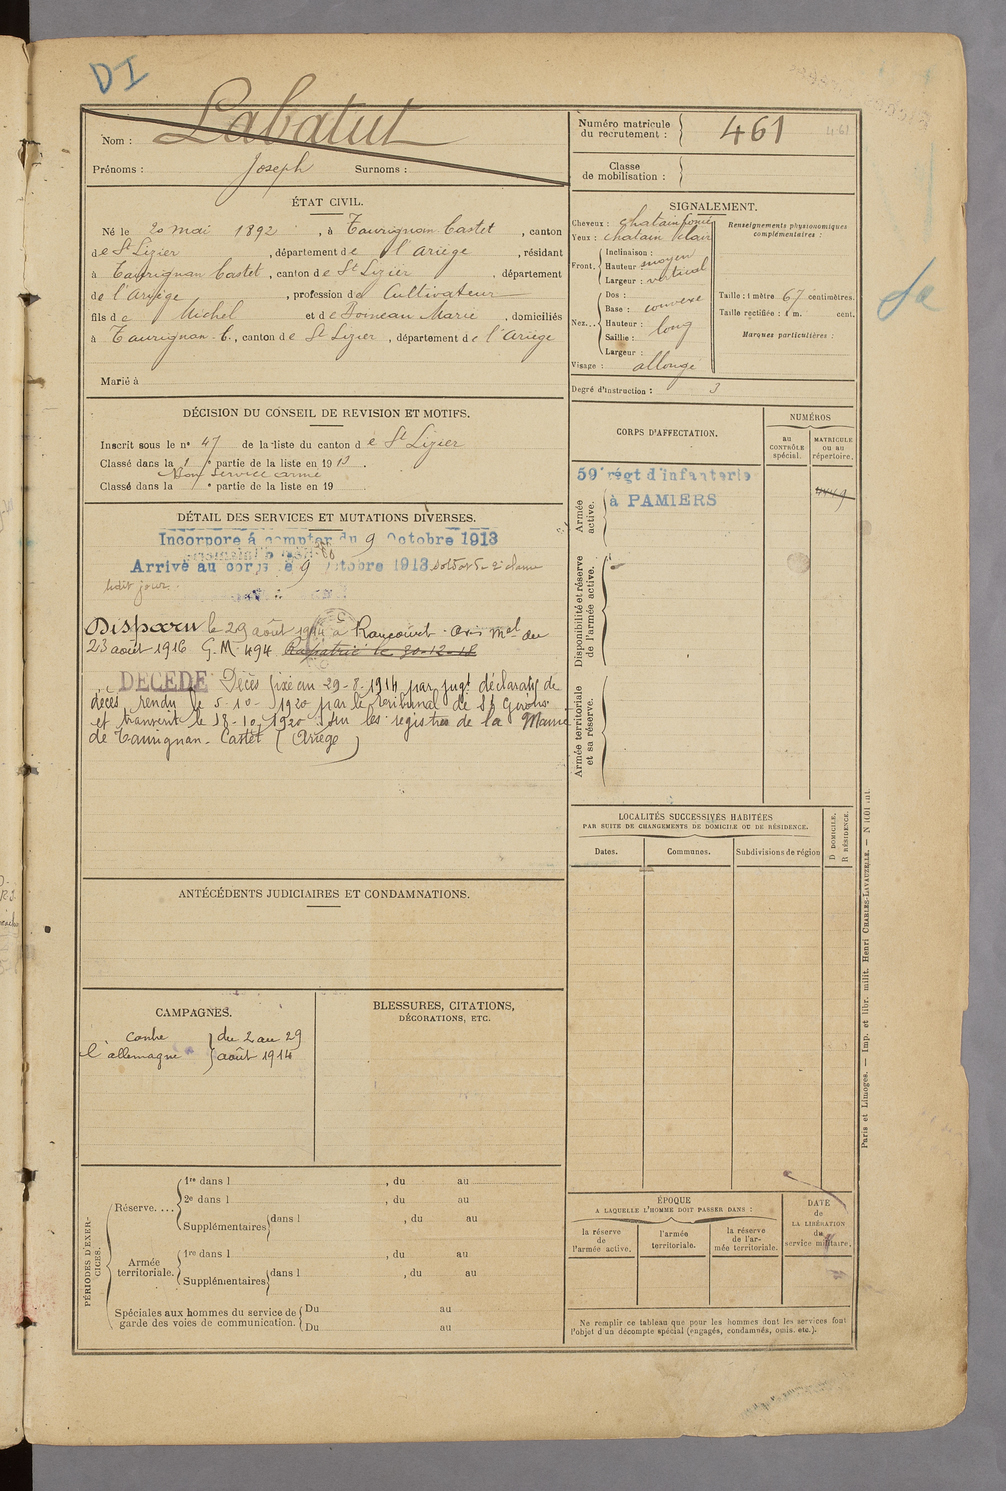 DI
Nom : Labatut
Prénoms : Joseph Surnoms :
Numéro matricule
du recrutement : 461
461
Classe
de mobilisation :
ÉTAT CIVIL.
Né le 20 mai 1892, à Taurignan Castet, canton
de St Lizier, département de l'Ariège, résidant
à Taurignan Castet, canton de St Lizier, département
de l'Ariège, profession de Cultivateur
fils de Michel et de Marie, domiciliés
à Taurignan C., canton de St Lizier, département de l'Ariège
Marié à
SIGNALEMENT.
Cheveux : chatain foncé
Yeux : chatain clair
Front. Inclinaison :
Hauteur : moyen
Largeur : vertical
Nez... Dos :
Base : convexe
Hauteur : long
Saillie :
Largeur :
Visage : allongé
Renseignements physionomiques
complémentaires :
Taille : 1 mètre 67 centimètres.
Taille rectifiée : 1 m. cent.
Marques particulières :
Degré d'instruction : 3
DÉCISION DU CONSEIL DE REVISION ET MOTIFS.
Inscrit sous le n° 47 de la liste du canton de St Lizier
Classé dans la 1e partie de la liste en 1913.
Bon service armé
Classé dans la e partie de la liste en 19
DÉTAIL DES SERVICES ET MUTATIONS DIVERSES.
Incorporé à compter du 9 Octobre 1913
Arrivé au corps le 9 Octobre 1913 soldat de 2e classe
ledit jour.
Disparu le 29 août 1914 à Raucourt. avis mel du
23 août 1916 G.M. 494 Rapatrié le 30-12-18
DECEDE Décès fixé au 29-8-1914 par jugt déclaratif de
décès rendu le 5-10-1920 par le tribunal de St Girons
et transcrit le 18-10-1920 sur les registres de la Mairie
de Taurignan-Castet (Ariège)
CORPS D'AFFECTATION.
NUMÉROS
AU
CONTRÔLE
spécial.
MATRICULE
OU AU
répertoire.
59e régt d'infanterie
à PAMIERS
Armée
active.
Disponibilité et réserve
de l'armée active.
Armée territoriale
et sa réserve.
LOCALITÉS SUCCESSIVES HABITÉES
PAR SUITE DE CHANGEMENTS DE DOMICILE OU DE RÉSIDENCE.
Dates.
Communes.
Subdivisions de région
D DOMICILE.
R RÉSIDENCE.
ANTÉCÉDENTS JUDICIAIRES ET CONDAMNATIONS.
CAMPAGNES.
contre
l'allemagne
du 2 au 29
août 1914
BLESSURES, CITATIONS,
DÉCORATIONS, ETC.
PÉRIODES D'EXER-
CICES.
Réserve....
1re dans l , du au
2e dans l , du au
Supplémentaires dans l , du au
Armée
territoriale.
1re dans l , du au
Supplémentaires dans l , du au
Spéciales aux hommes du service de
garde des voies de communication.
Du au
Du au
ÉPOQUE
A LAQUELLE L'HOMME DOIT PASSER DANS :
la réserve
de
l'armée active.
l'armée
territoriale.
la réserve
de l'ar-
mée territoriale.
DATE
de
LA LIBÉRATION
du
service militaire.
Ne remplir ce tableau que pour les hommes dont les services font
l'objet d'un décompte spécial (engagés, condamnés, omis, etc.).
Paris et Limoges. — Imp. et libr. milit. Henri CHARLES-LAVAUZELLE. —